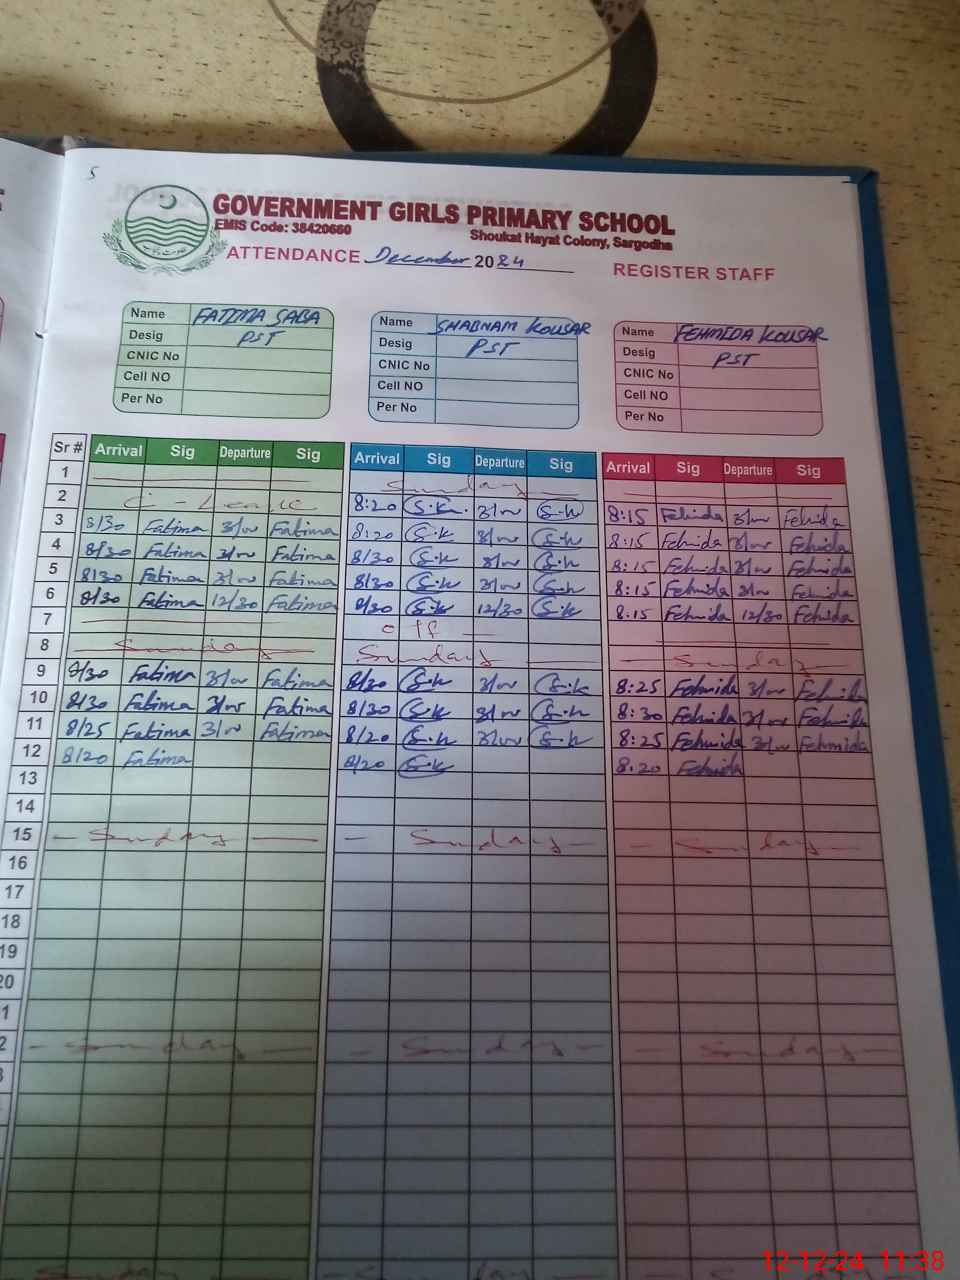 5
GOVERNMENT GIRLS PRIMARY SCHOOL
EMIS Code: 38420660 Shoukat Hayat Colony, Sargodha
ATTENDANCE December 2024 REGISTER STAFF
Name FATIMA SABA Name SHABNAM KOUSAR Name FEHMIDA KOUSAR
Desig PST Desig PST Desig PST
CNIC No CNIC No CNIC No
Cell NO Cell NO Cell NO
Per No Per No Per No
Sr # Arrival Sig Departure Sig Arrival Sig Departure Sig Arrival Sig Departure Sig
1 Sunday
2 C-Leave 8:20 S.K. 3/00 S.K 8:15 Fehmida 3/00 Fehmida
3 8/30 Fatima 3/00 Fatima 8:20 S.K 3/00 S.K 8:15 Fehmida 3/00 Fehmida
4 8/30 Fatima 3/00 Fatima 8/30 S.K 3/00 S.K 8:15 Fehmida 3/00 Fehmida
5 8/30 Fatima 3/00 Fatima 8/30 S.K 3/00 S.K 8:15 Fehmida 3/00 Fehmida
6 8/30 Fatima 12/30 Fatima 8/30 S.K 12/30 S.K 8.15 Fehmida 12/30 Fehmida
7 off
8 Sunday Sunday Sunday
9 8/30 Fatima 3/00 Fatima 8/30 S.K 3/00 S.K 8:25 Fehmida 3/00 Fehmida
10 8/30 Fatima 3/00 Fatima 8/30 S.K 3/00 S.K 8:30 Fehmida 3/00 Fehmida
11 8/25 Fatima 3/00 Fatima 8/20 S.K 3/00 S.K 8:25 Fehmida 3/00 Fehmida
12 8/20 Fatima 8/20 S.K 8.20 Fehmida
13
14
15 Sunday Sunday Sunday
16
17
18
19
20
1
2 Sunday Sunday Sunday
3
Sunday
12-12-24 11:38